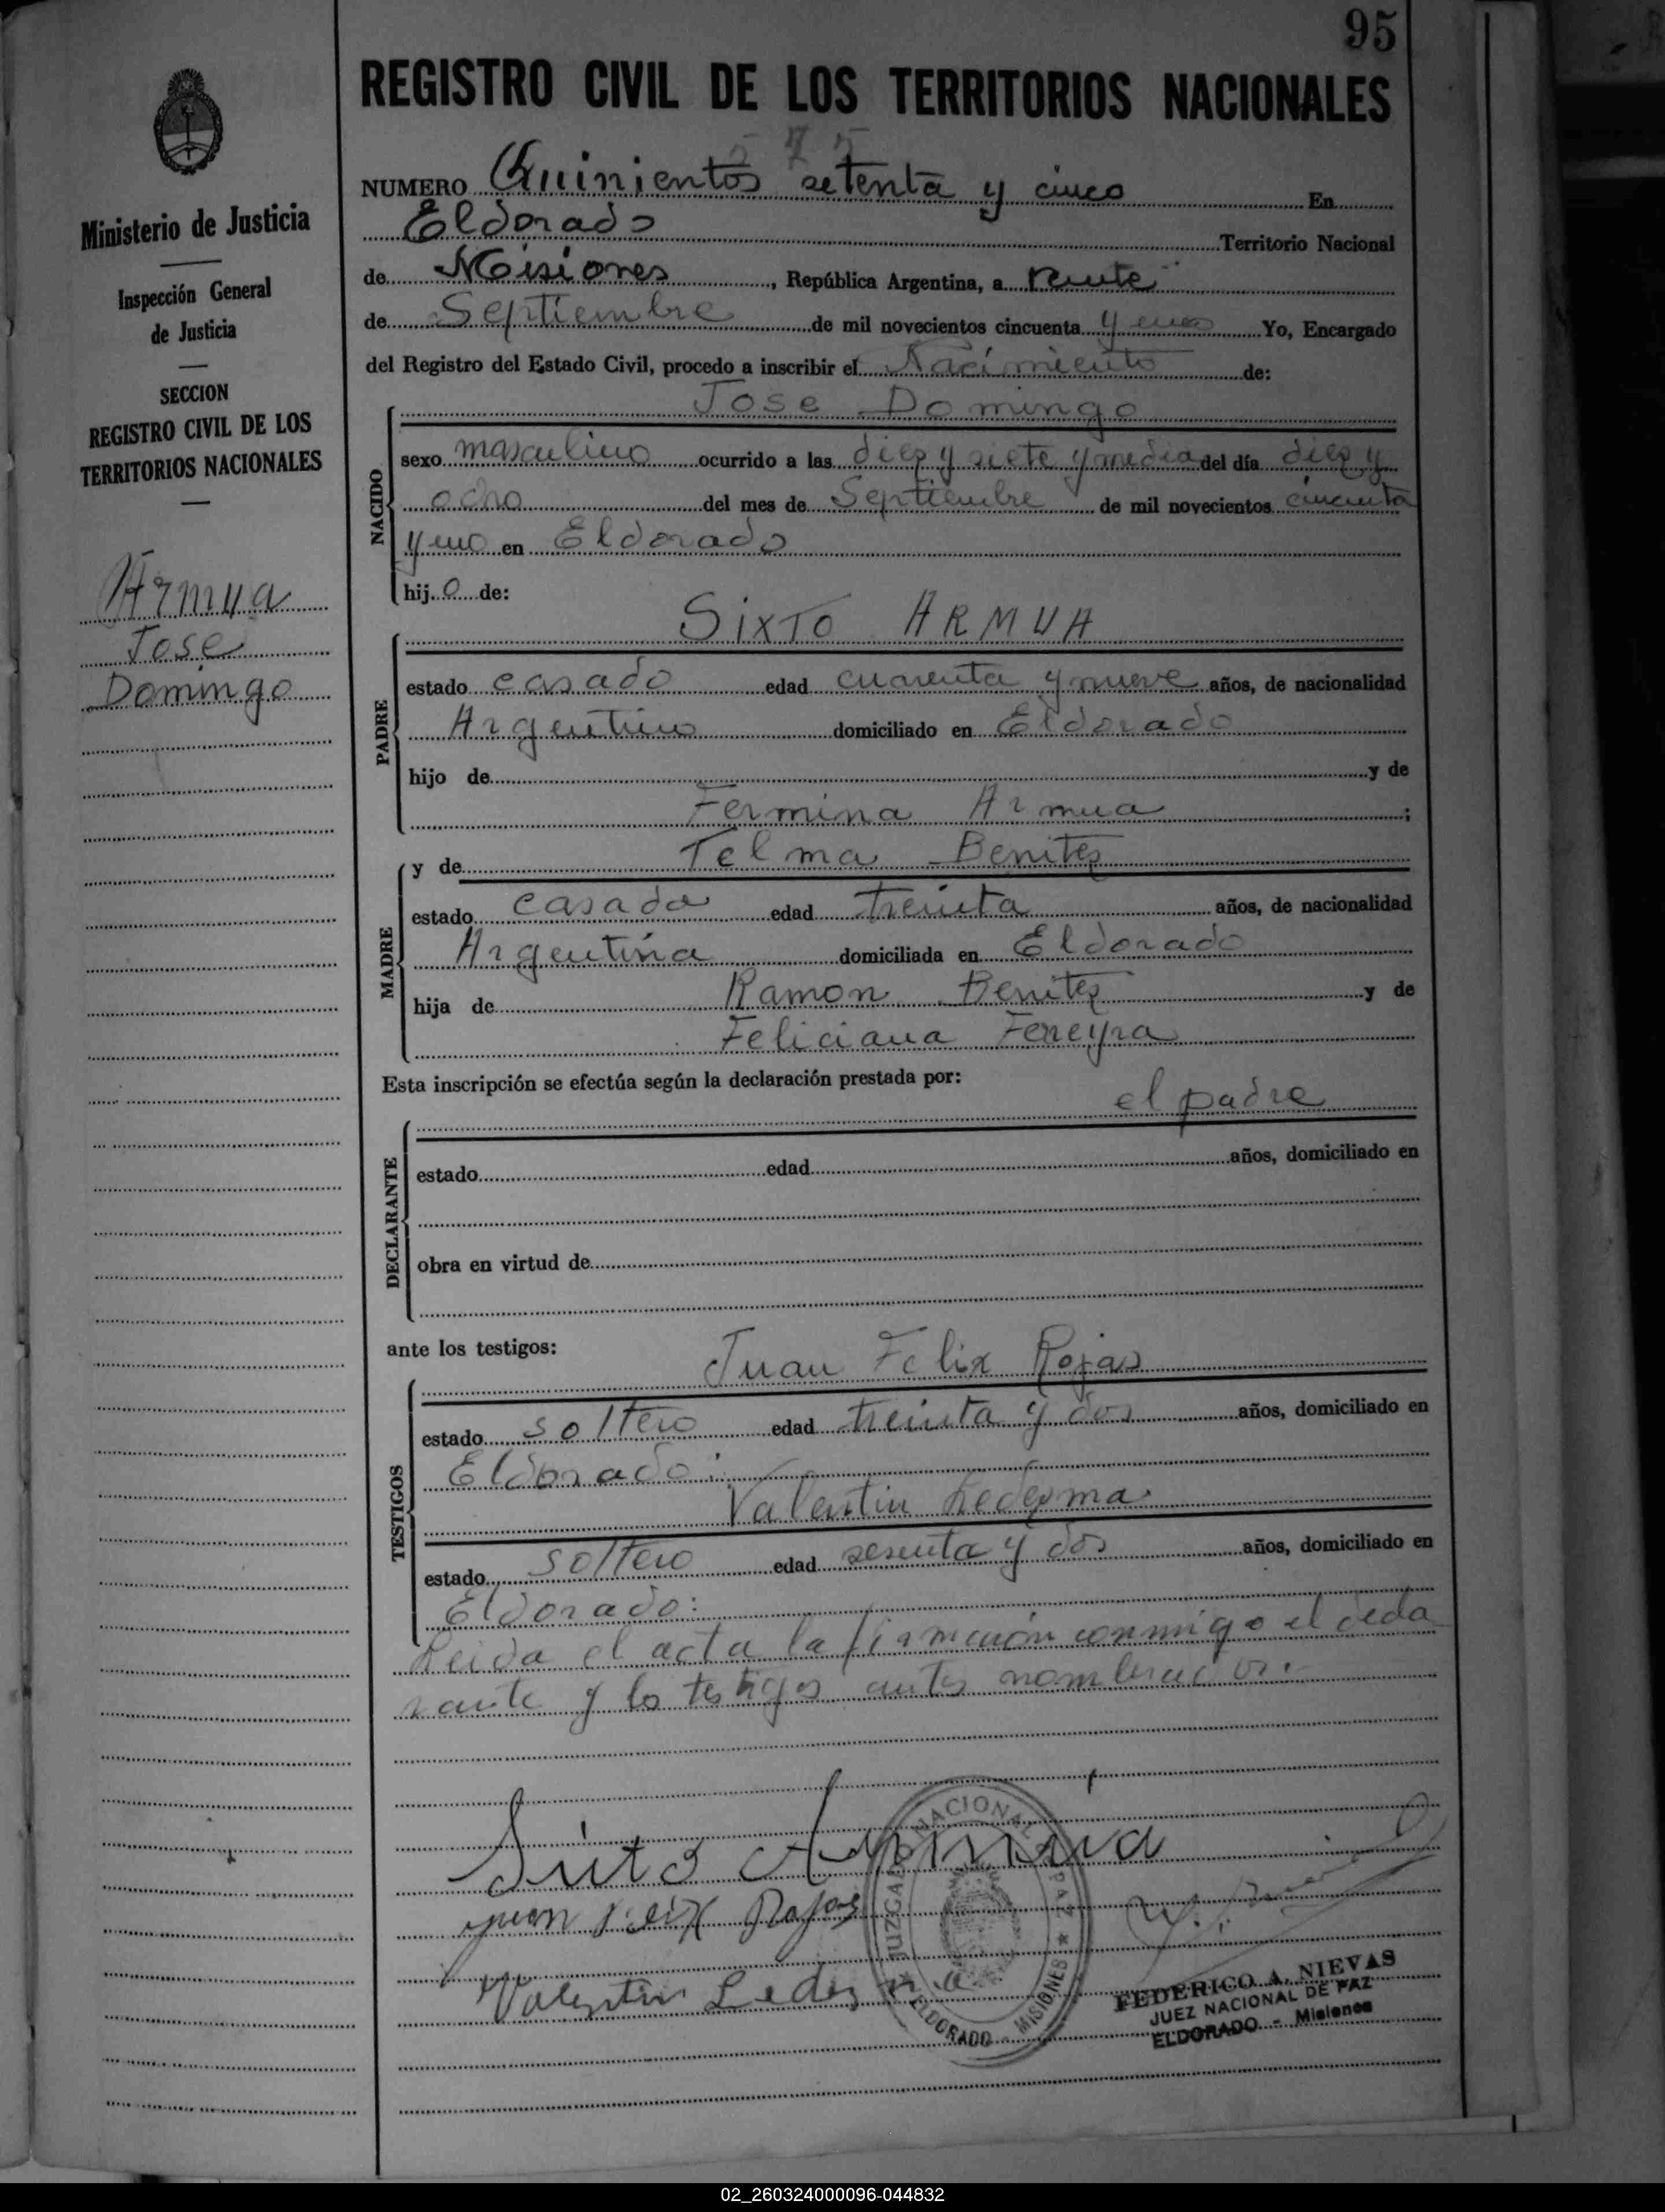 95
REGISTRO CIVIL DE LOS TERRITORIOS NACIONALES
575
NUMERO Quinientos setenta y cinco En
Eldorado Territorio Nacional
de Misiones, República Argentina, a veinte
de Septiembre de mil novecientos cincuenta y uno Yo, Encargado
del Registro del Estado Civil, procedo a inscribir el Nacimiento de:
Ministerio de Justicia
Inspección General
de Justicia
SECCION
REGISTRO CIVIL DE LOS
TERRITORIOS NACIONALES
Armua
Jose
Domingo
NACIDO
Jose Domingo
sexo masculino ocurrido a las diez y siete y media del día diez y
ocho del mes de Septiembre de mil novecientos cincuenta
y uno en Eldorado
hijo de:
PADRE
Sixto ARMUA
estado casado edad cuarenta y nueve años, de nacionalidad
Argentino domiciliado en Eldorado
hijo de y de
Fermina Armua ;
MADRE
y de Telma Benitez
estado casada edad treinta años, de nacionalidad
Argentina domiciliada en Eldorado
hija de Ramon Benitez y de
Feliciana Fereyra
Esta inscripción se efectúa según la declaración prestada por:
el padre
DECLARANTE
estado edad años, domiciliado en
obra en virtud de
ante los testigos:
TESTIGOS
Juan Felix Rojas
estado soltero edad treinta y dos años, domiciliado en
Eldorado:
Valentin Ledesma
estado soltero edad sesenta y dos años, domiciliado en
Eldorado:
Leida el acta la firmaron conmigo el decla
rante y los testigos antes nombrados.-
Sixto Armua
Juan Felix Rojas
Valentin Ledezma
JUZGADO NACIONAL DE PAZ
ELDORADO - MISIONES ★
FEDERICO A. NIEVAS
JUEZ NACIONAL DE PAZ
ELDORADO - Misiones
02_260324000096-044832